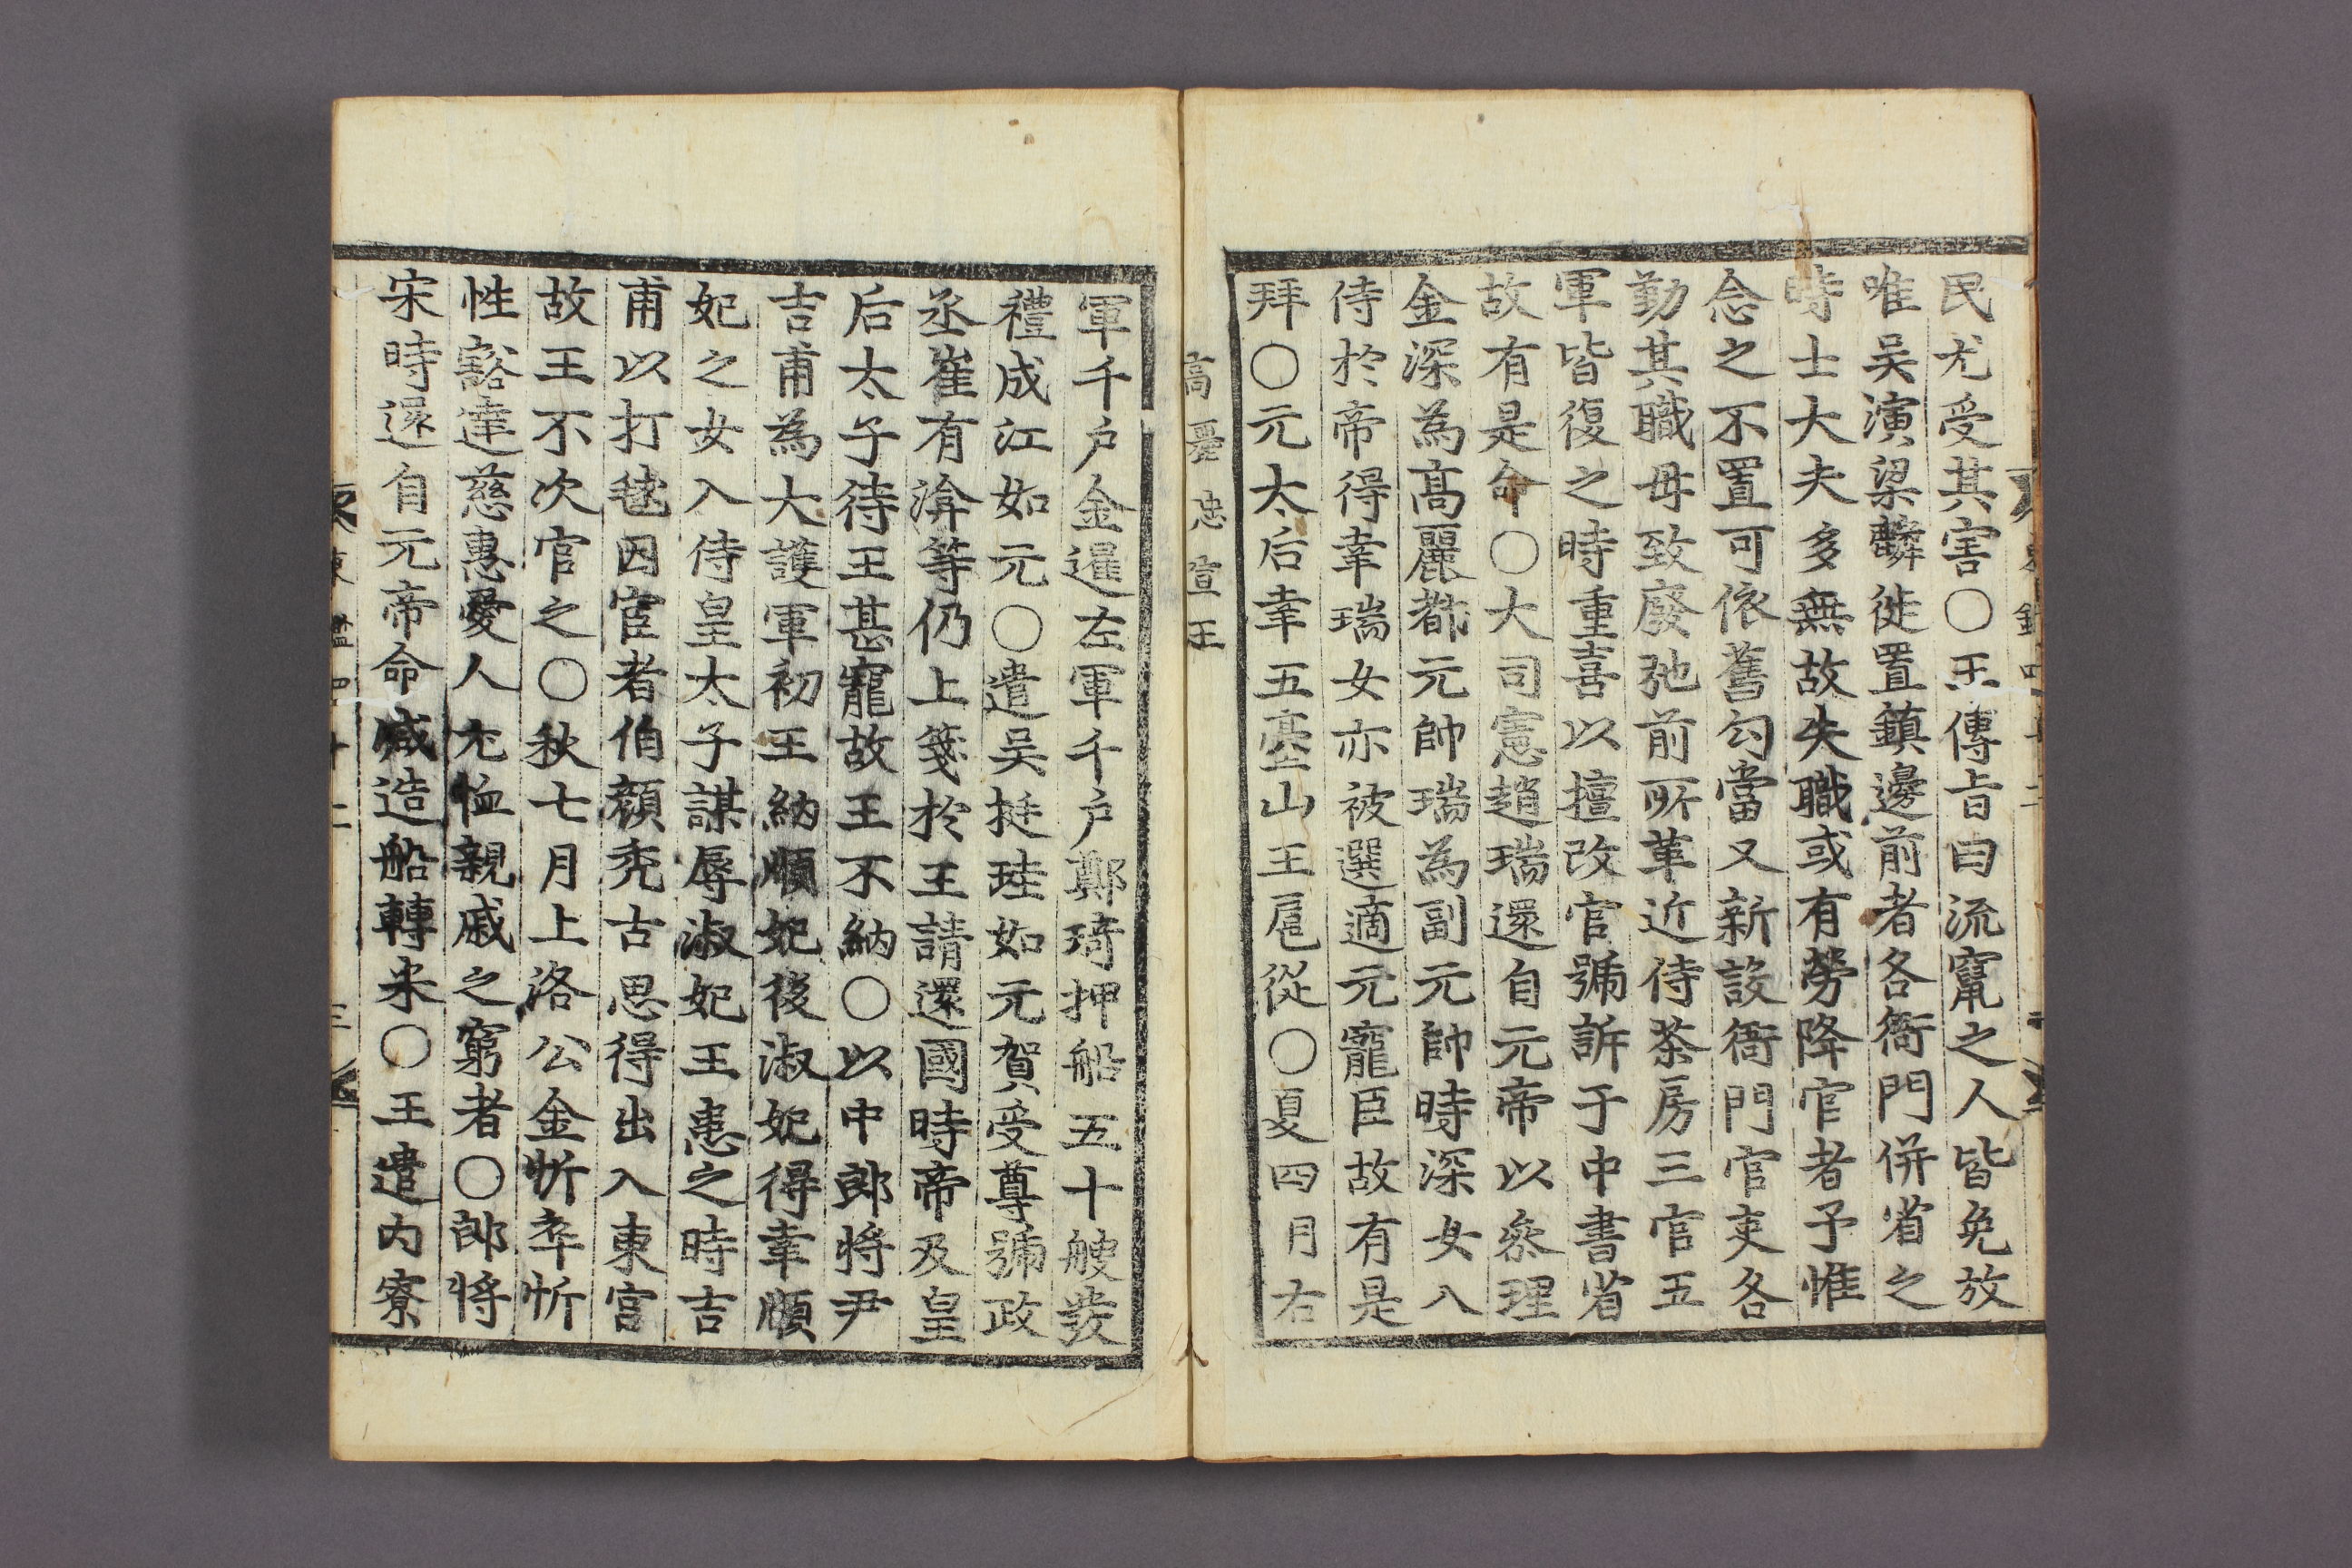 民尤受其害○王傳旨曰流竄之人皆免放
唯吴演梁䕲徙置鎮邊前者各衙門併省之
時士大夫多無故失職或有勞降官者予惟
念之不置可依舊勾當又新設衙門官吏各
勤其職毋致廢弛前所革近侍茶房三官五
軍皆復之時重喜以擅改官號訴于中書省
故有是命○大司憲趙瑞還自元帝以叅理
金深為髙麗都元帥瑞為副元帥時深女入
侍於帝得幸瑞女亦被選適元寵臣故有是
拜○元太后幸五臺山王扈從○夏四月右
高麗忠宣王
軍千户金暹左軍千户鄭琦押船五十艘發
禮成江如元○遣吴挺珪如元賀受尊號政
丞崔有渰等仍上箋於王請還國時帝及皇
后太子待王甚寵故王不納○以中郎將尹
吉甫為大護軍初王納順妃後淑妃得幸順
妃之女入侍皇太子謀辱淑妃王恚之時吉
甫以打毬因宦者伯顔禿古思得出入東宫
故王不次官之○秋七月上洛公金忻卒忻
性豁達慈惠愛人尤恤親戚之窮者○郎將
宋時還自元帝命減造船轉米○王遣内寮
東 鑑四十二 三